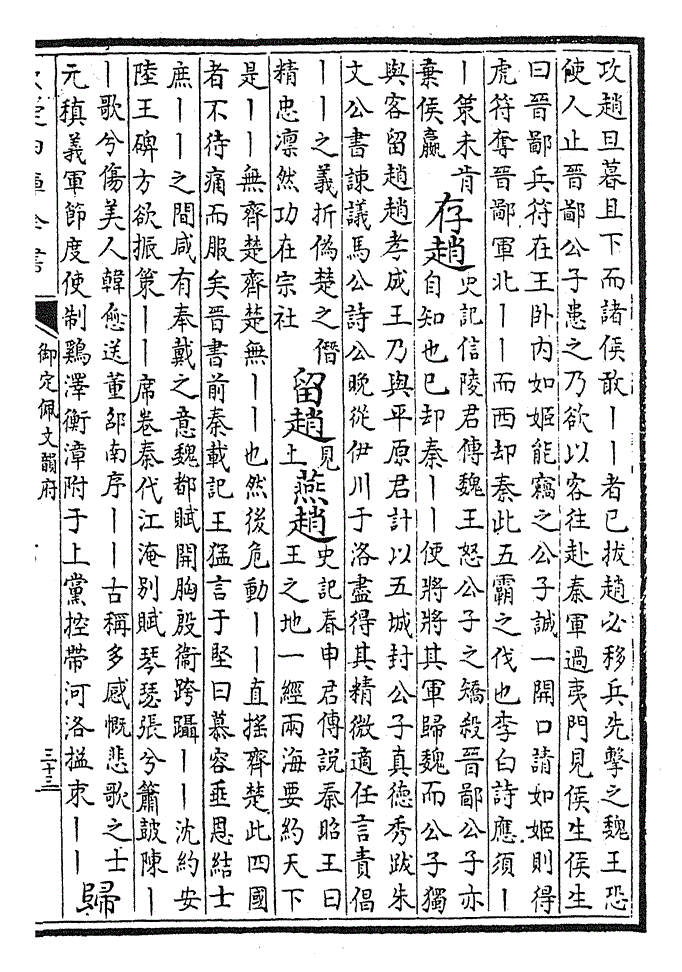 攻趙旦暮且下而諸侯敢丨丨者已拔趙必移兵先擊之魏王恐
使人止晉鄙公子患之乃欲以客往赴秦軍過夷門見侯生侯生
曰晉鄙兵符在王卧内如姬能竊之公子誠一開口請如姬則得
虎符奪晉鄙軍北丨丨而西却秦此五霸之伐也李白詩應須丨
丨策未肯
棄侯嬴
存趙
史記信陵君傳魏王怒公子之矯殺晉鄙公子亦
自知也已却秦丨丨使將將其軍歸魏而公子獨
與客留趙趙孝成王乃與平原君計以五城封公子真德秀跋朱
文公書諫議馬公詩公晚從伊川于洛盡得其精微適任言責倡
丨丨之義折偽楚之僭
精忠凛然功在宗社
留趙
見
上
燕趙
史記春申君傳說秦昭王曰
王之地一經兩海要約天下
是丨丨無齊楚齊楚無丨丨也然後危動丨丨直摇齊楚此四國
者不待痛而服矣晉書前秦載記王猛言于堅曰慕容垂恩結士
庶丨丨之間咸有奉戴之意魏都賦開胸殷衛跨躡丨丨沈約安
陸王碑方欲振策丨丨席卷秦代江淹別賦琴瑟張兮簫鼓陳丨
丨歌兮傷美人韓愈送董邵南序丨丨古稱多感慨悲歌之士
元稹義軍節度使制鷄澤衡漳附于上黨控帶河洛搤束丨丨
歸
欽定四庫全書
御定佩文韻府
三十三